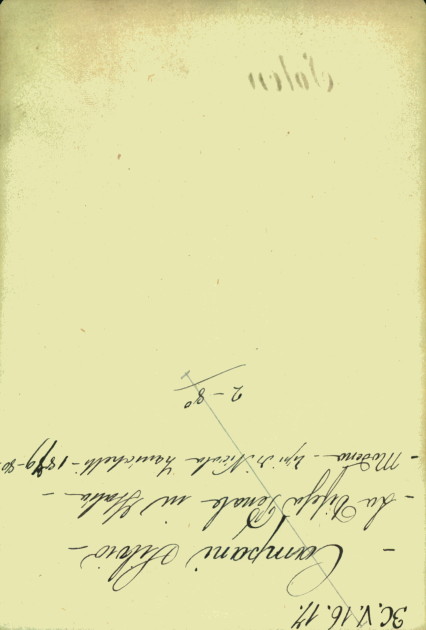 3C.V.16.17.
- Campani Silvio -
- La Difesa Penale in Italia -
- Modena - tipi di Nicola Zanichelli - 1879-80
2 - 8º